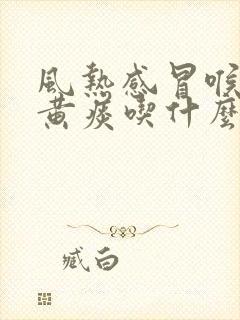 風熱感冒喉
黃痰喫什麼
臧白